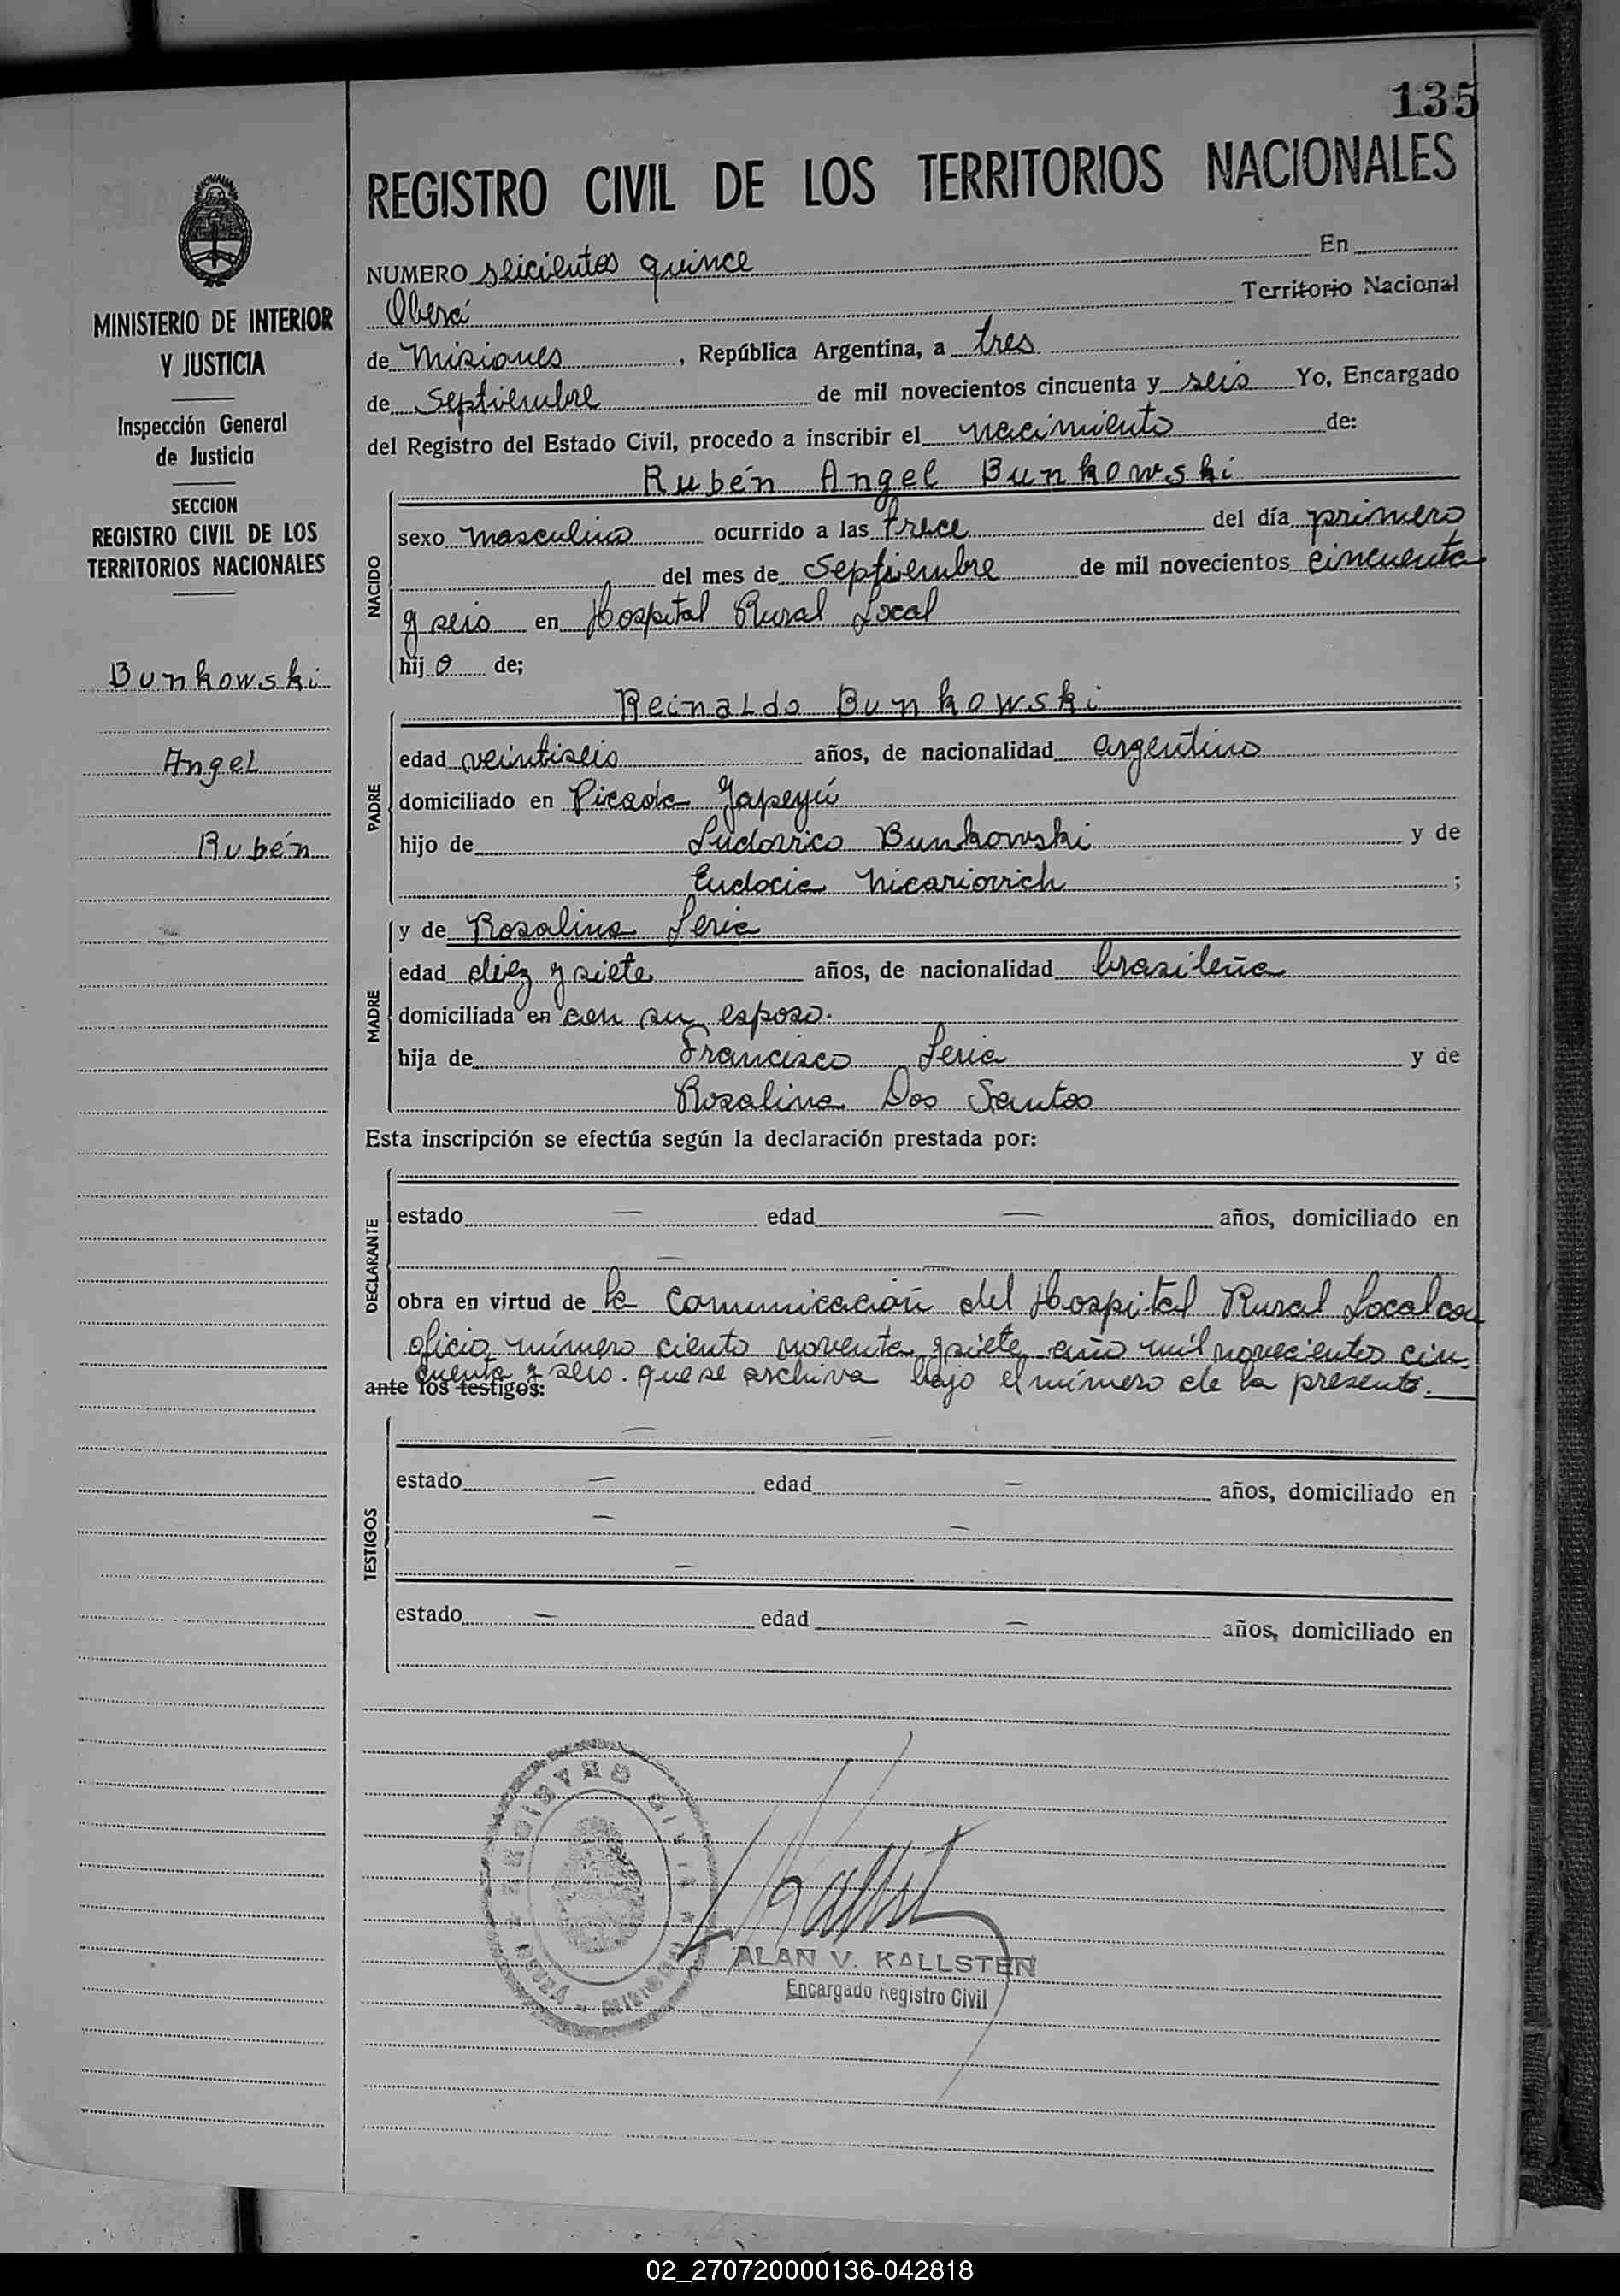 135
REGISTRO CIVIL DE LOS TERRITORIOS NACIONALES
MINISTERIO DE INTERIOR
Y JUSTICIA
Inspección General
de Justicia
SECCION
REGISTRO CIVIL DE LOS
TERRITORIOS NACIONALES
Bunkowski
Angel
Rubén
NUMERO seicientos quince En
Oberá Territorio Nacional
de Misiones, República Argentina, a tres
de Septiembre de mil novecientos cincuenta y seis Yo, Encargado
del Registro del Estado Civil, procedo a inscribir el nacimiento de:
Rubén Angel Bunkowski
NACIDO
sexo masculino ocurrido a las trece del día primero
del mes de Septiembre de mil novecientos cincuenta
y seis en Hospital Rural Local
hijo de;
Reinaldo Bunkowski
PADRE
edad veintiseis años, de nacionalidad argentino
domiciliado en Picada Yapeyú
hijo de Ludovico Bunkowski y de
Eudocia Nicariovich ;
y de Rosalina Seria
MADRE
edad diez y siete años, de nacionalidad brasileña
domiciliada en con su esposo.
hija de Francisco Seria y de
Rosalina Dos Santos
Esta inscripción se efectúa según la declaración prestada por:
DECLARANTE
estado — edad — años, domiciliado en
— —
obra en virtud de la comunicación del Hospital Rural Local con
oficio número ciento noventa y siete año mil novecientos cin-
cuenta y seis. que se archiva bajo el número de la presente.
ante los testigos:
TESTIGOS
— —
estado — edad — años, domiciliado en
— —
—
estado — edad — años, domiciliado en
REGISTRO CIVIL
OBERA - MISIONES
ALAN V. KALLSTEN
Encargado Registro Civil
02_270720000136-042818